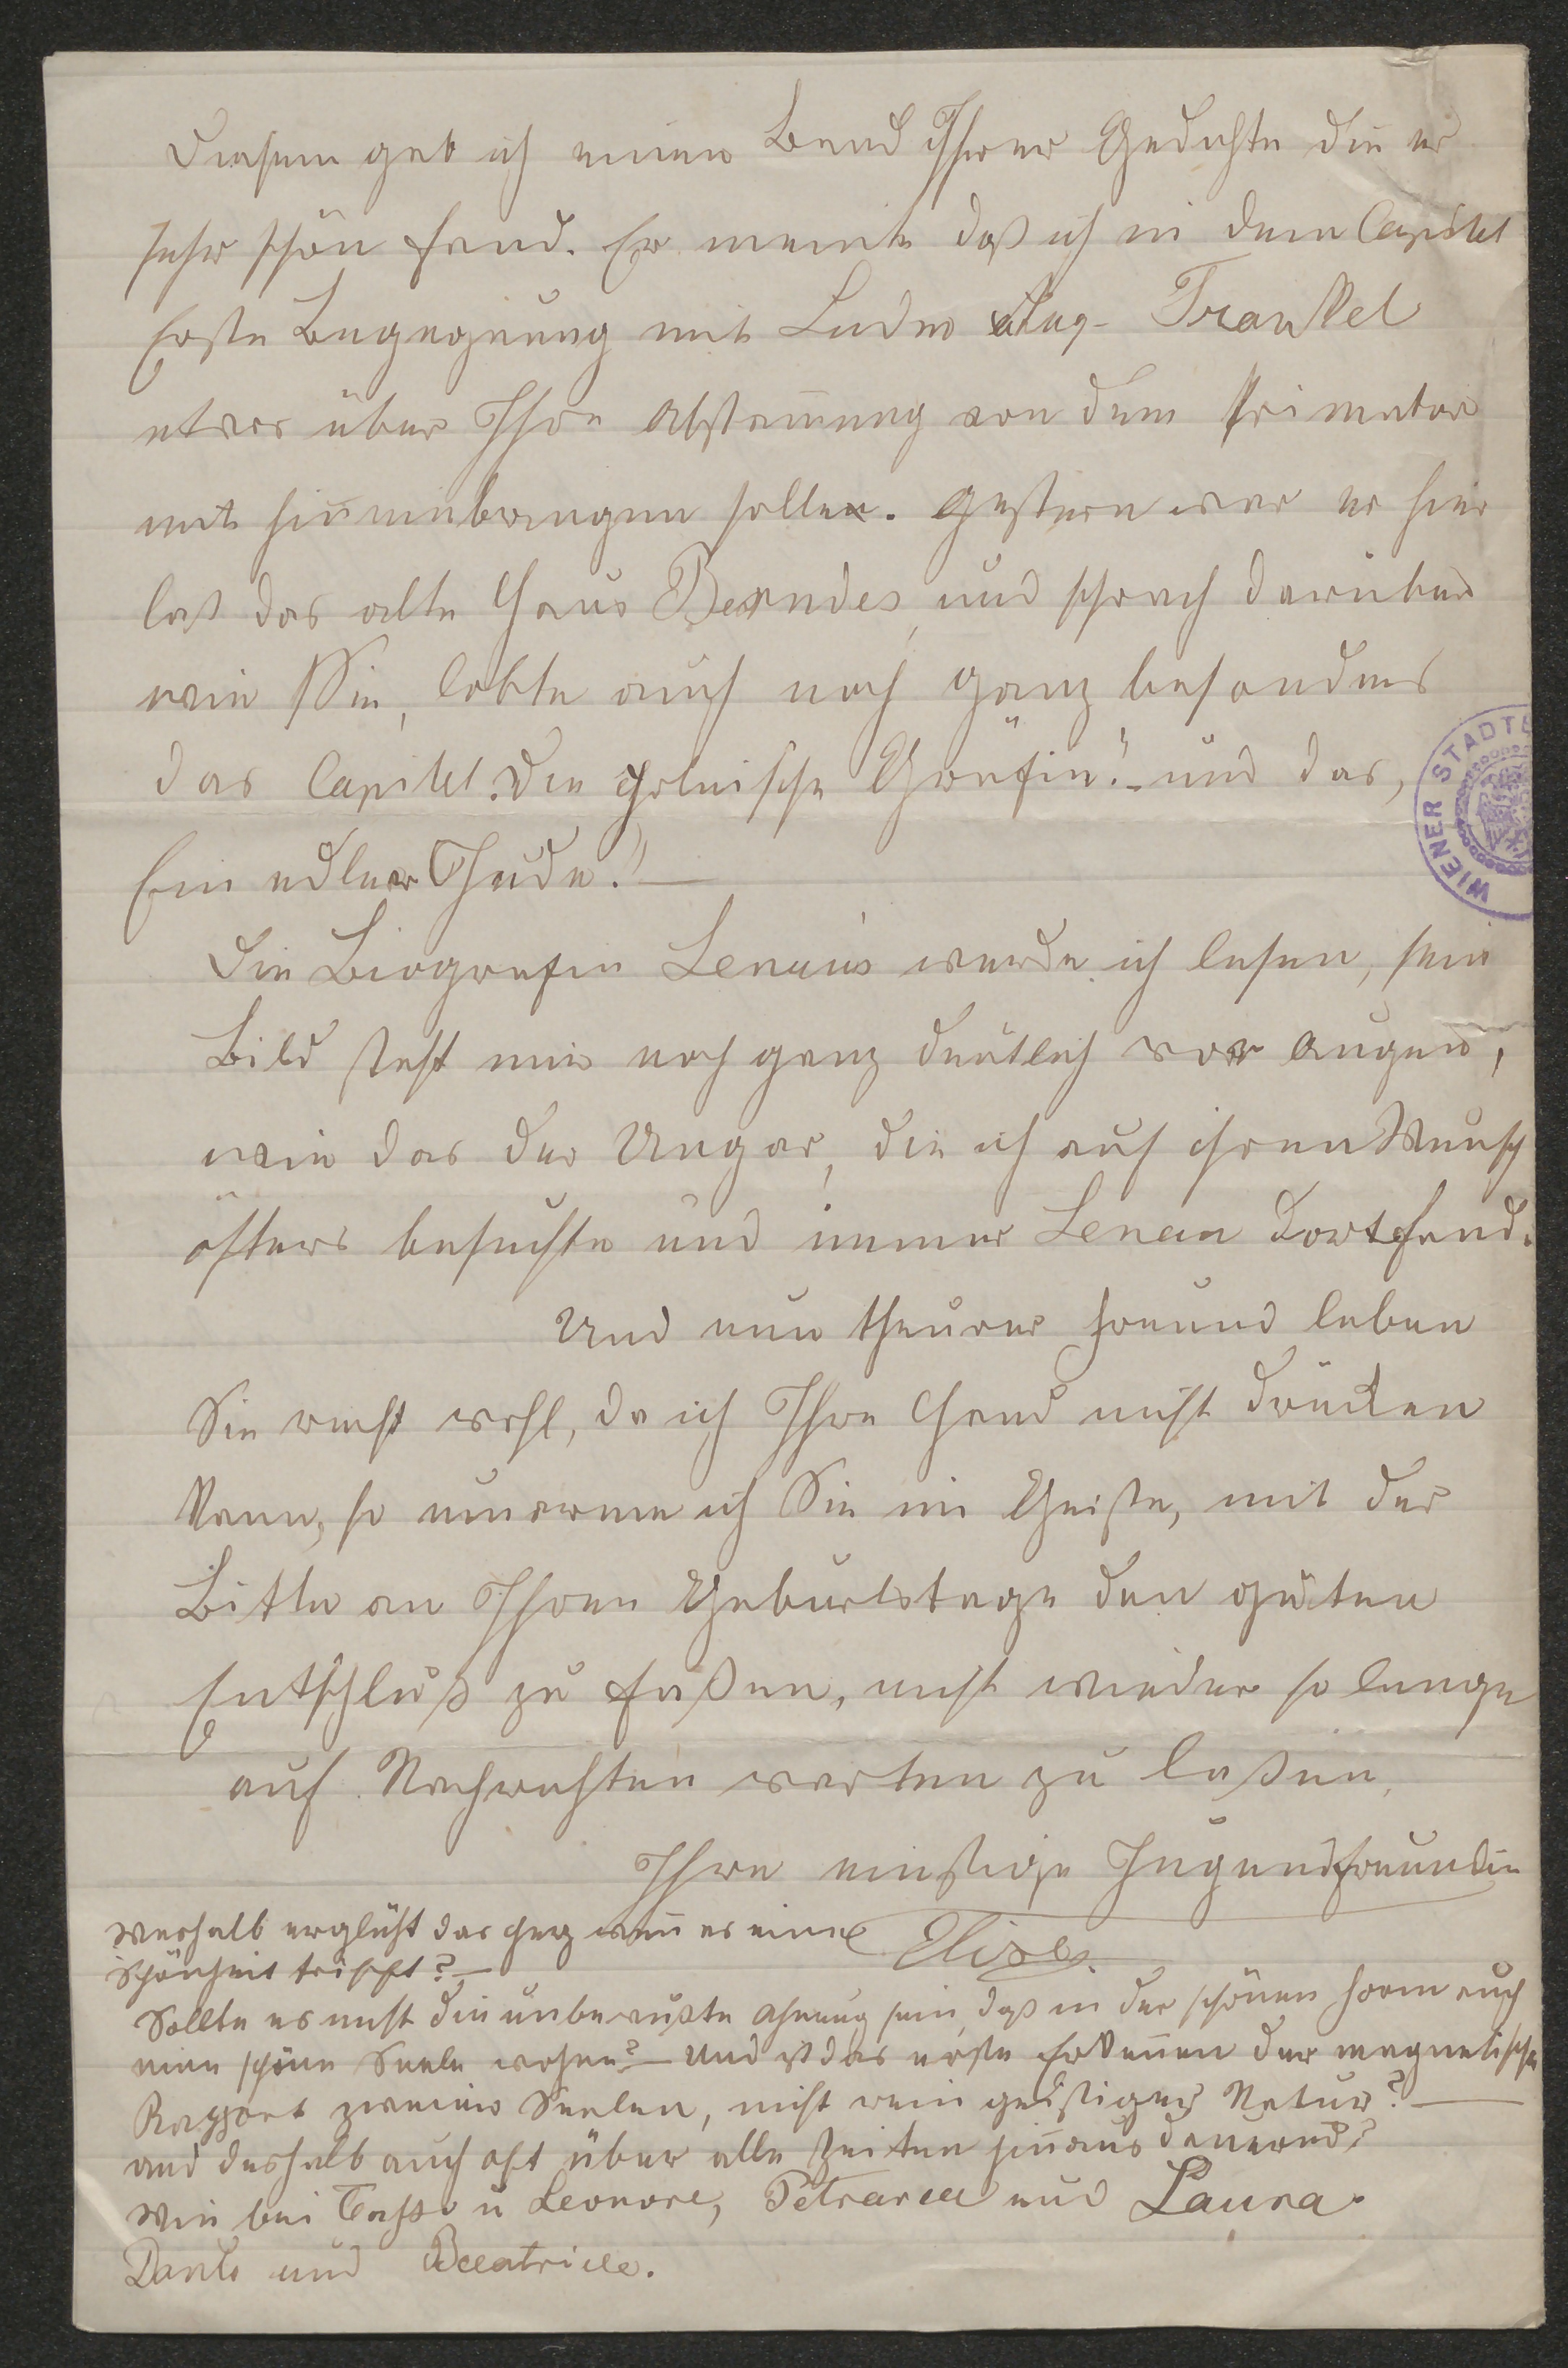 Diesem gab ich einen Band Ihrer Gedichte die er
sehr schön fand. Er meinte daß ich in dem Capitel
Erste Begegnung mit Ludw Aug- Frankel
etwas über Ihre Abstam̄ung von dem Primator
mit hineinbringen sollen. Gestern war er hier
las das alte Haus Berndes, und sprach darüber
wie Sie, lobte auch noch ganz besonders
das Capitel. Die polnische Gräfin!" - und das,
Ein edler Jude!" —
Die Biografie Lenau's werde ich lesen, sein
Bild steht mir noch ganz deutlich vor Augen,
wie das der Ungar, die ich auf ihren Wunsch
öfters besuchte und immer Lenau dort fand.
Und nun theurer Freund leben
Sie recht wohl, da ich Ihre Hand nicht drücken
kann, so umarme ich Sie im Geiste, mit der
Bitte an Ihrem Geburtstage den guten
Entschluß zu faßen, nicht wieder so lange
auf Nachrichten warten zu laßen.
Ihre einstige Jugendfreundin
Elise.
Weshalb erglüht das Herz wen̄ es eine
Schönheit trifft? —
Sollte es nicht die unbewußte Ahnung sein, daß in der schönen Form auch
eine schöne Seele wohne? — Und ist das erste Erken̄en der magnetische
Rapport zweier Seelen, nicht rein geistiger Natur? —
und deshalb auch oft über alle Zeiten hinaus dauernd?
Wie bei Tasso u Leonore, Petrarca und Laura.
Dante und Beatrice.
WIENER STADT